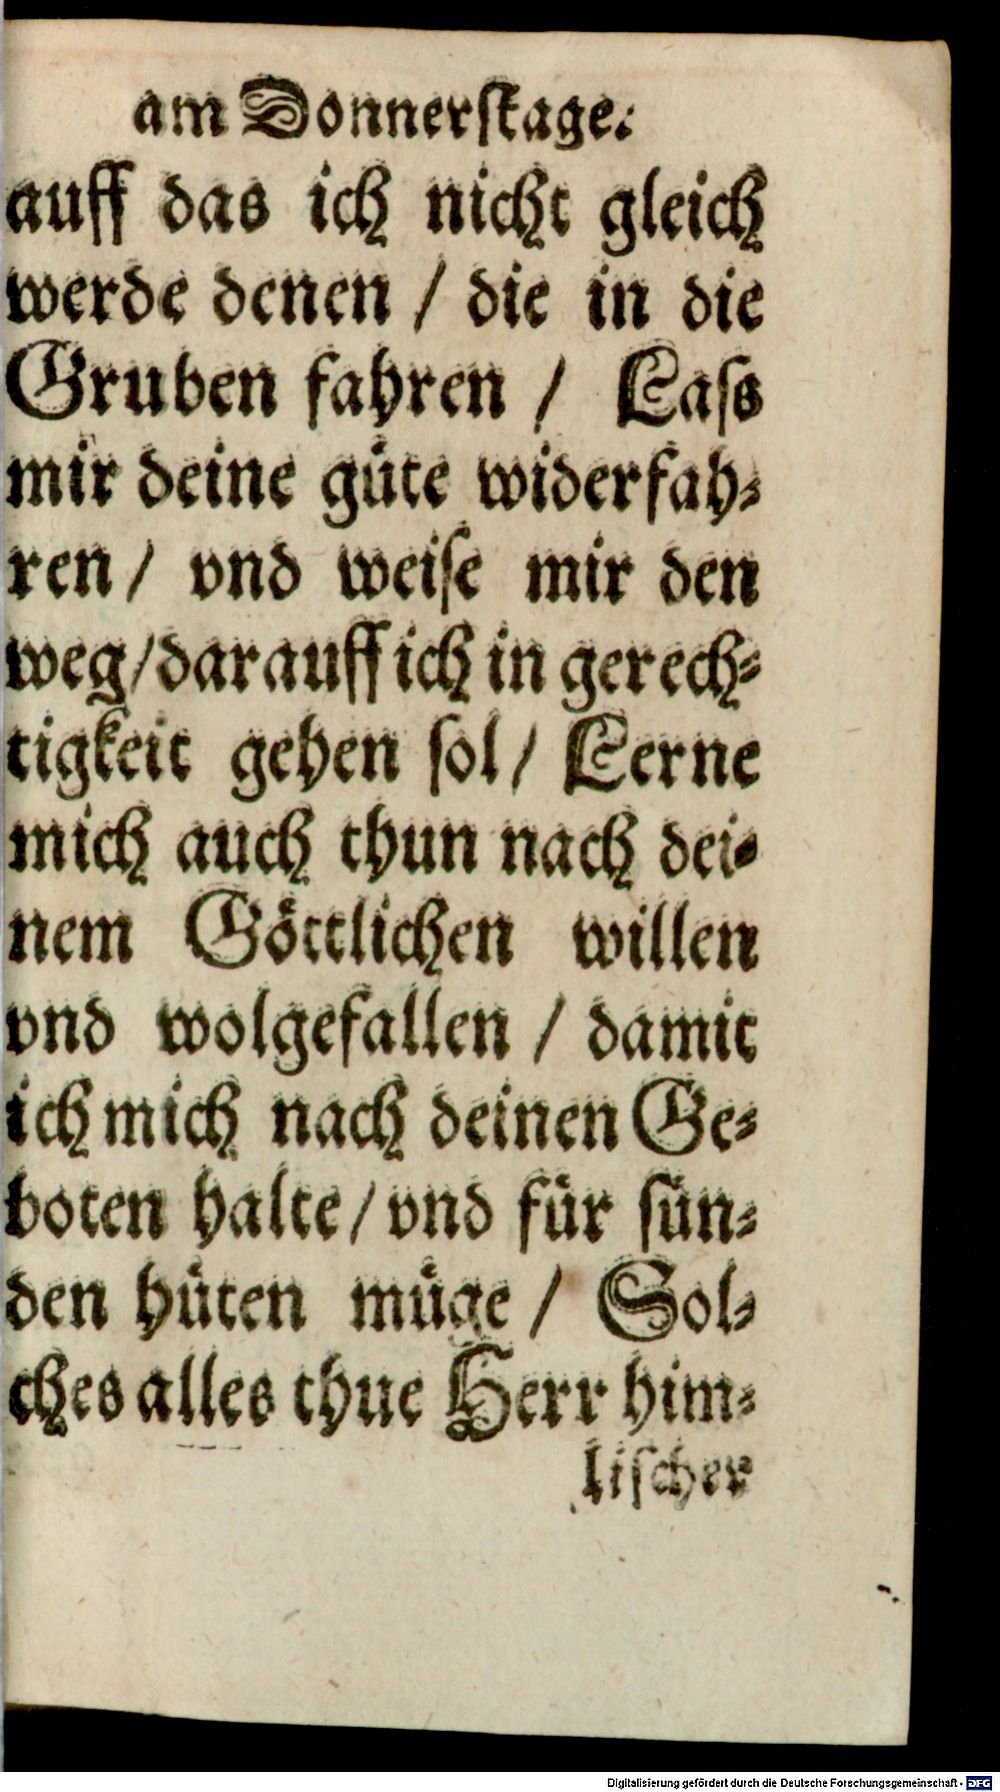 am Donnerstage.
auff das ich nicht gleich
werde denen / die in die
Gruben fahren / Lass
mir deine güte widerfah⸗
ren / vnd weise mir den
weg / darauff ich in gerech⸗
tigkeit gehen sol / Lerne
mich auch thun nach dei⸗
nem Göttlichen willen
vnd wolgefallen / damit
ich mich nach deinen Ge⸗
boten halte / vnd für sün⸗
den hüten müge / Sol⸗
ches alles thue Herr him⸗
lischer
Digitalisierung gefördert durch die Deutsche Forschungsgemeinschaft - DFG